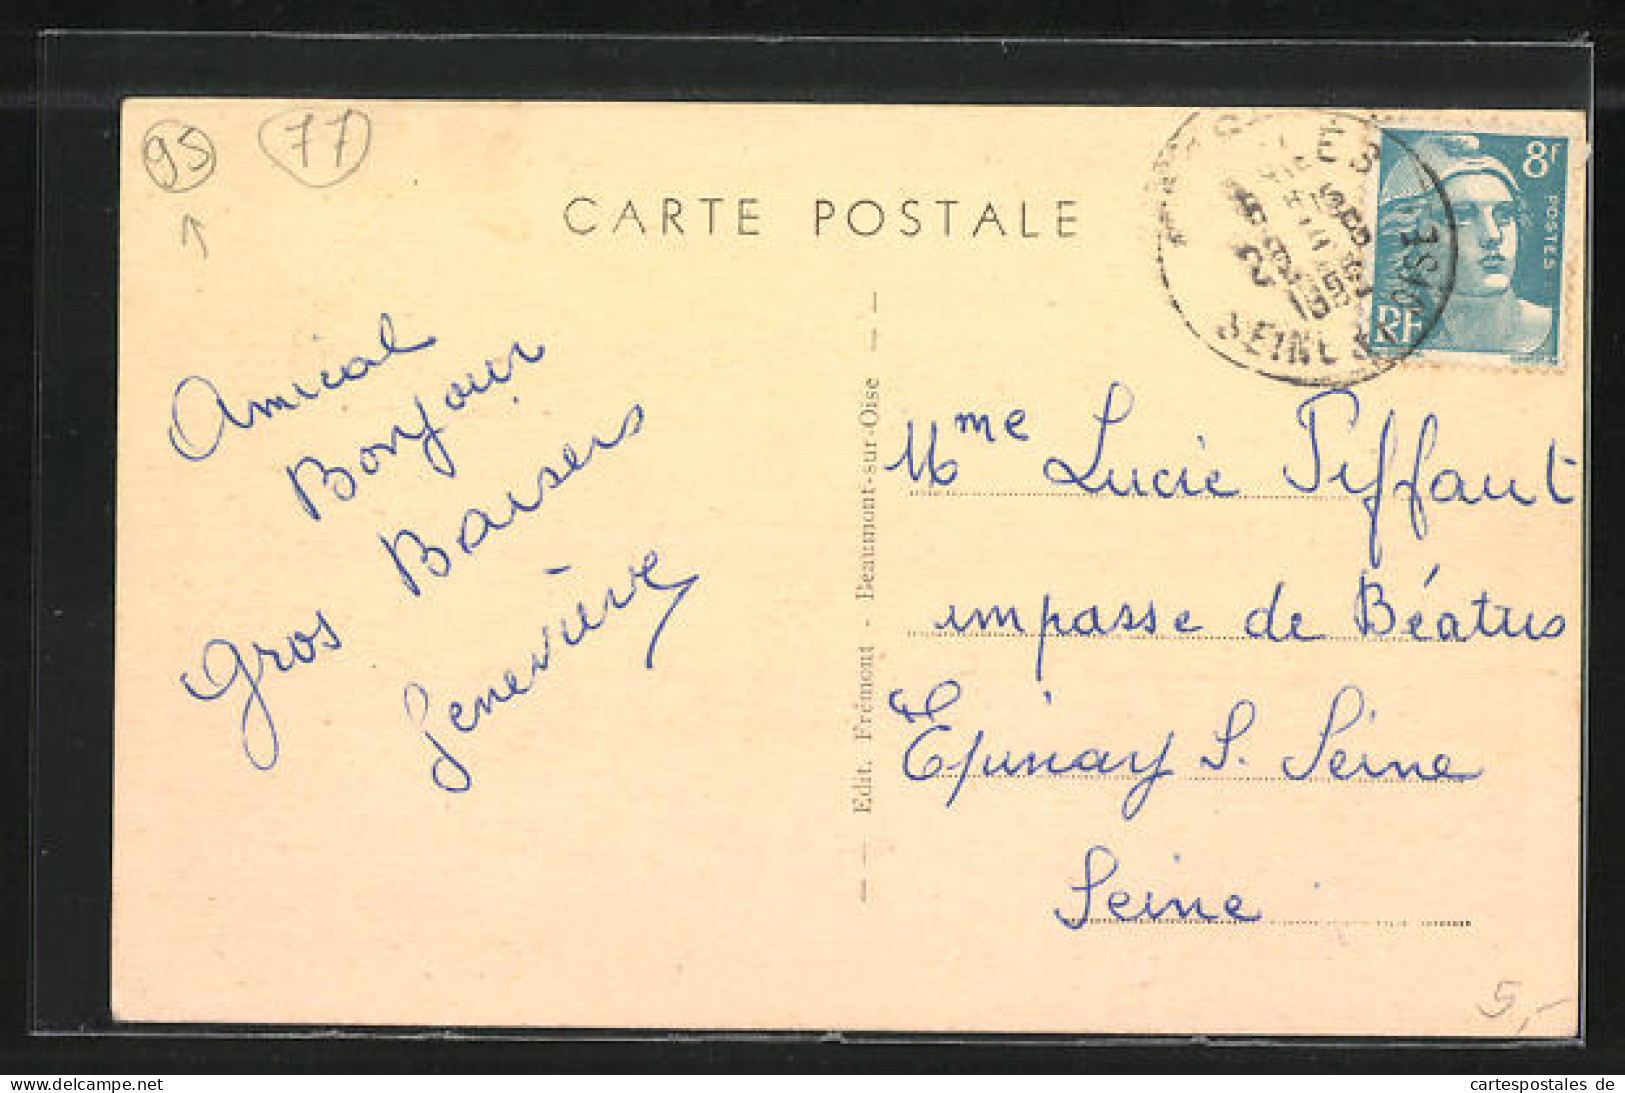 95
77
CARTE POSTALE
8F
POSTES
RF
SEINE
Amical
Bonjour
Gros Baisers
Geneviève
Edit. Frémont - Beaumont-sur-Oise
Mme Lucie Piffaut
impasse de Béatus
Epinay S. Seine
Seine
5,-
cartespostales de